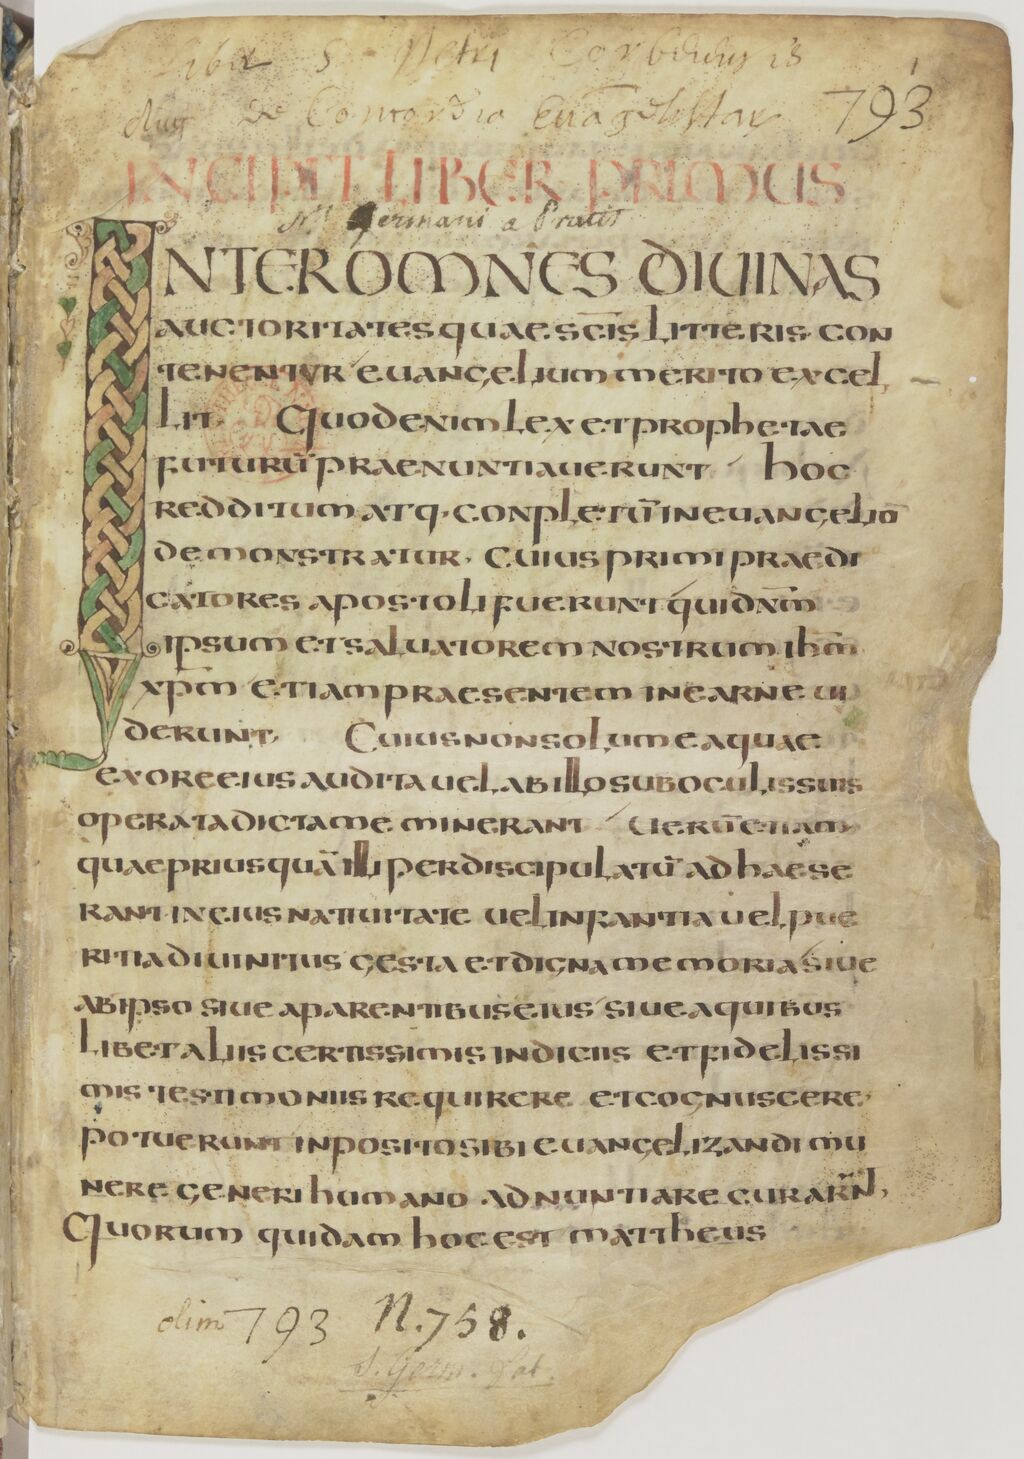 Liber S. Petri Corbeiensis
De Concordia Euāgelistar
793
1
INCIPIT LIBER PRIMUS
Sti Germani a Pratis
INTER OMNES DIUINAS
AUCTORITATES QUAE SC̄IS LITTERIS CON
TENENTUR EUANGELIUM MERITO EXCEL
LIT. QUOD ENIM LEX ET PROPHETAE
FUTURŪ PRAENUNTIAUERUNT HOC
REDDITUM ATQ· CONPLETŪ IN EUANGELIO
DEMONSTRATUR. CUIUS PRIMI PRAEDI
CATORES APOSTOLI FUERUNT QUI DN̄M
IPSUM ET SALUATOREM NOSTRUM IHM̄
XPM̄ ETIAM PRAESENTEM IN EARNE UI
DERUNT. CUIUS NON SOLUM EA QUAE
EX ORE EIUS AUDITA UEL AB ILLO SUB OCULIS SUIS
OPERATA DICTA MEMINERANT UERŪ ETIAM
QUAE PRIUS QUĀ ILLI PER DISCIPULATŪ ADHAESE
RANT IN EIUS NATIUITATE UEL INFANTIA UEL PUE
RITIA DIUINITUS GESTA ET DIGNA MEMORIA SIUE
AB IPSO SIUE A PARENTIBUS EIUS SIUE A QUIBUS
LIBET ALIIS CERTISSIMIS INDICIIS ET FIDELISSI
MIS TESTIMONIIS REQUIRERE ET COGNUSCERE
POTUERUNT INPOSITO SIBI EUANGELIZANDI MU
NERE GENERI HUMANO ADNUNTIARE CURARN̄T,
QUORUM QUIDAM HOC EST MATTHEUS
olim 793 N. 758.
S. Germ. Lat.